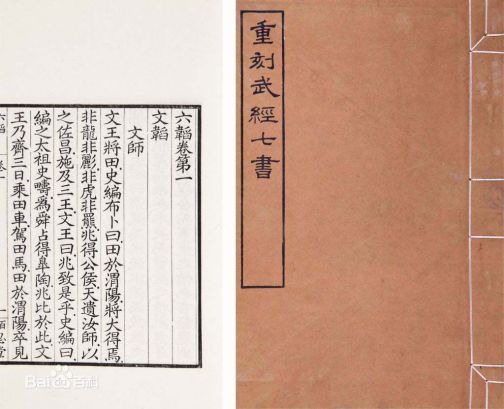 重刻武經七書
六韜卷第一
文韜
文師
文王將田史編布卜曰田於渭陽將大得焉
非龍非彲非虎非羆兆得公侯天遺汝師以
之佐昌施及三王文王曰兆致是乎史編曰
編之太祖史疇爲舜占得皐陶兆比於此文
王乃齊三日乘田車駕田馬田於渭陽卒見
六韜 卷一 一 百忍堂
Bai du 百科